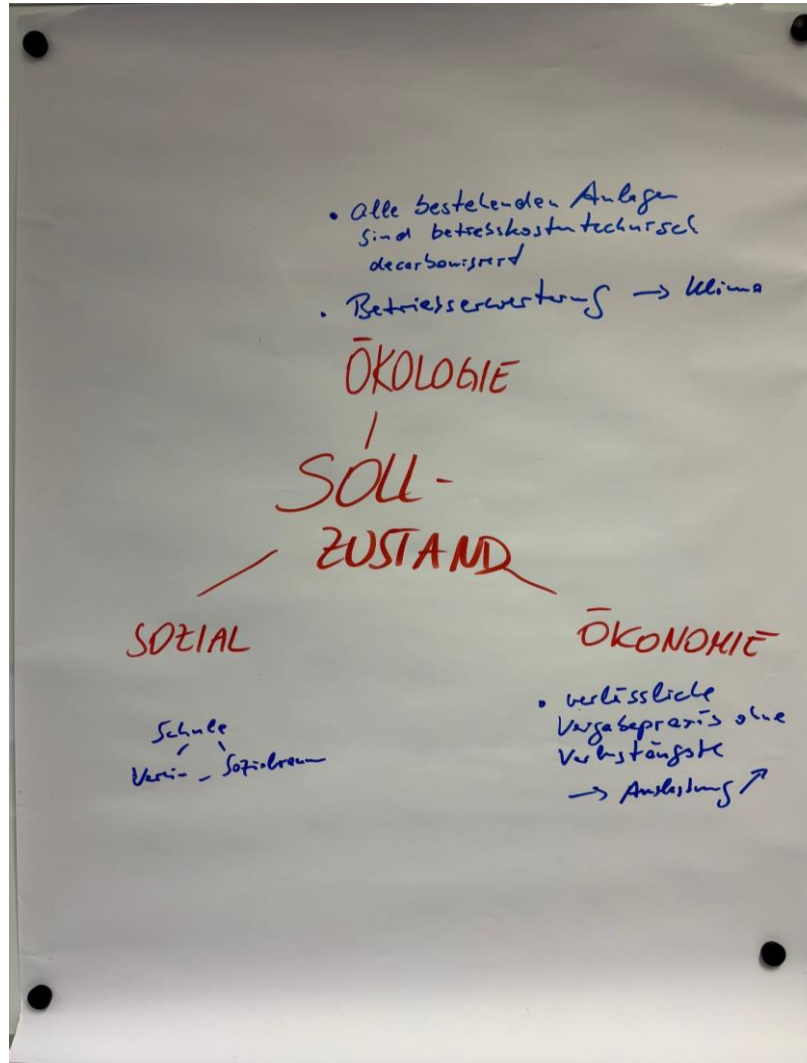 • alle bestehenden Anlagen
sind betriebskostentechnisch
decarbonisiert
• Betriebserweiterung → Klima
ÖKOLOGIE
SOLL-
ZUSTAND
SOZIAL
ÖKONOMIE
Schule
Verein - Sozialraum
• verlässliche
Vergabepraxis ohne
Verlustängste
→ Auslastung ↗